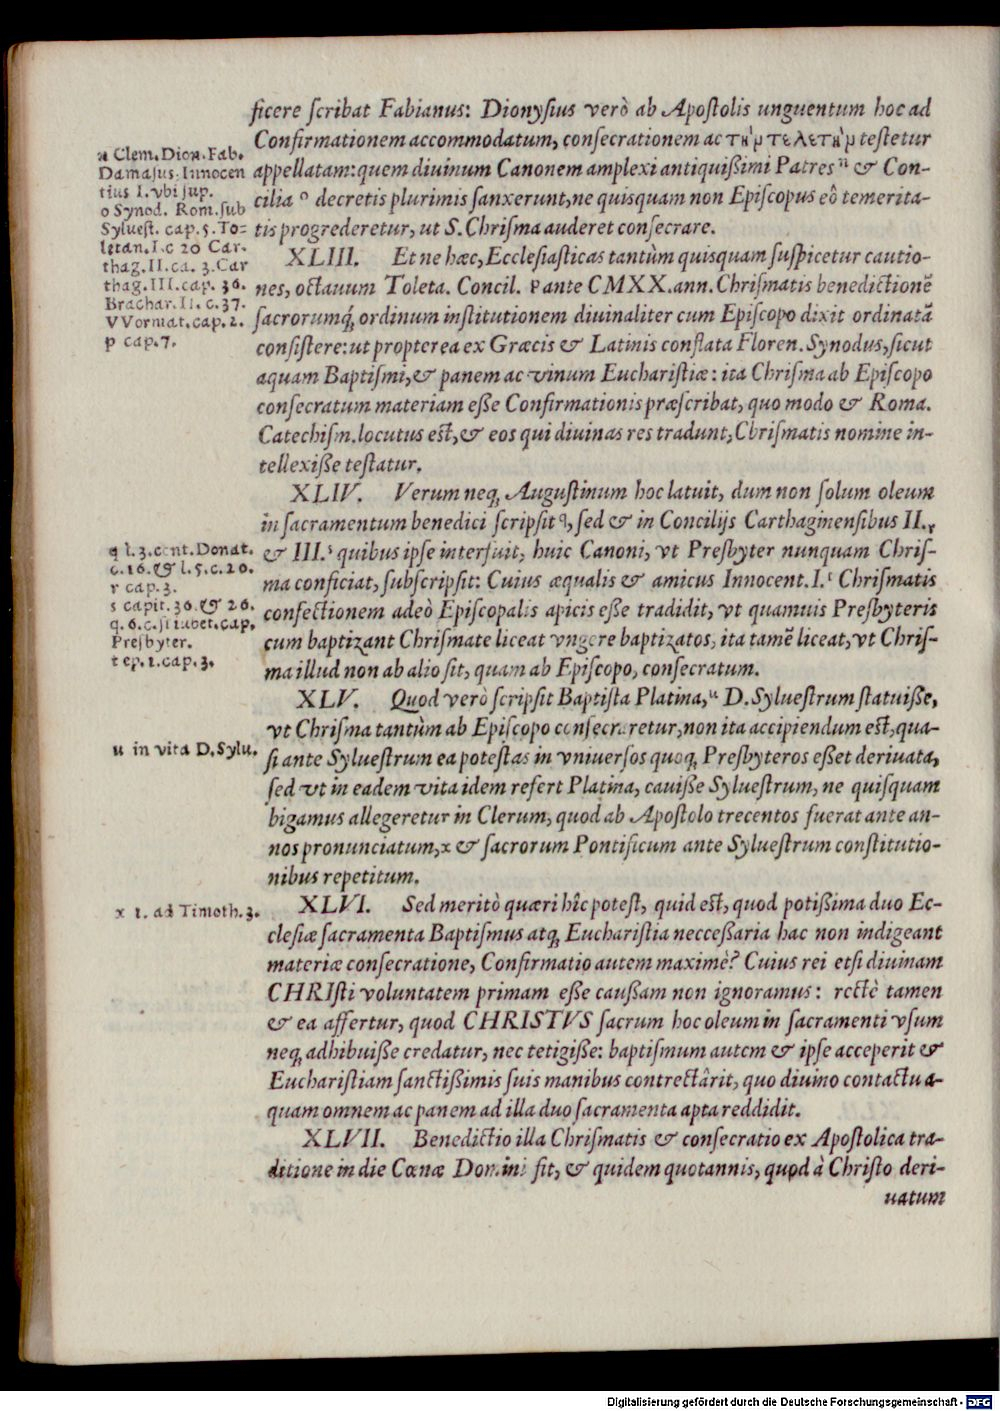 ficere ſcribat Fabianus: Dionyſius verò ab Apoſtolis unguentum hoc ad
Confirmationem accommodatum, conſecrationem ac τὴν τελετὴν teſtetur
appellatam: quem diuinum Canonem amplexi antiquißimi Patres n & Con-
cilia o decretis plurimis ſanxerunt, ne quisquam non Epiſcopus eô temerita-
tis progrederetur, ut S. Chriſma auderet conſecrare.
n Clem. Dion. Fab.
Damaſus. Innocen
tius I. vbi ſup.
o Synod. Rom. ſub
Sylueſt. cap. 5. To=
letan. I. c 20 Car.
thag. II. ca. 3. Car
thag. III. cap. 36.
Brachar. II. c. 37.
VVormat. cap. 2.
p cap. 7.
XLIII. Et ne hæc, Eccleſiaſticas tantùm quisquam ſuſpicetur cautio-
nes, octauum Toleta. Concil. p ante CMXX. ann. Chriſmatis benedictionē
ſacrorumq́; ordinum inſtitutionem diuinaliter cum Epiſcopo dixit ordinatā
conſiſtere: ut propterea ex Græcis & Latinis conflata Floren. Synodus, ſicut
aquam Baptiſmi, & panem ac vinum Euchariſtiæ: ita Chriſma ab Epiſcopo
conſecratum materiam eſſe Confirmationis præſcribat, quo modo & Roma.
Catechiſm. locutus eſt, & eos qui diuinas res tradunt, Chriſmatis nomine in-
tellexiſſe teſtatur.
XLIV. Verum neq; Auguſtinum hoc latuit, dum non ſolum oleum
in ſacramentum benedici ſcripſit q, ſed & in Concilijs Carthaginenſibus II. r
& III. s quibus ipſe interfuit, huic Canoni, vt Preſbyter nunquam Chriſ-
ma conficiat, ſubſcripſit: Cuius æqualis & amicus Innocent. I. t Chriſmatis
confectionem adeò Epiſcopalis apicis eſſe tradidit, vt quamuis Preſbyteris
cum baptizant Chriſmate liceat vngere baptizatos, ita tamē liceat, vt Chriſ-
ma illud non ab alio ſit, quam ab Epiſcopo, conſecratum.
q l. 3. cont. Donat.
c. 16. & l. 5. c. 20.
r cap. 3.
s capit. 36. & 26.
q. 6. c. ſi iubet. cap.
Preſbyter.
t ep. 1. cap. 3.
XLV. Quod verò ſcripſit Baptiſta Platina, u D. Sylueſtrum ſtatuiſſe,
vt Chriſma tantùm ab Epiſcopo conſecraretur, non ita accipiendum eſt, qua-
ſi ante Sylueſtrum ea poteſtas in vniuerſos quoq; Preſbyteros eſſet deriuata,
ſed vt in eadem vita idem refert Platina, cauiſſe Sylueſtrum, ne quiſquam
bigamus allegeretur in Clerum, quod ab Apoſtolo trecentos fuerat ante an-
nos pronunciatum, x & ſacrorum Pontificum ante Sylueſtrum conſtitutio-
nibus repetitum.
u in vita D. Sylu.
XLVI. Sed meritò quæri hîc poteſt, quid eſt, quod potißima duo Ec-
cleſiæ ſacramenta Baptiſmus atq; Euchariſtia necceſſaria hac non indigeant
materiæ conſecratione, Confirmatio autem maximè? Cuius rei etſi diuinam
CHRIſti voluntatem primam eſſe cauſſam non ignoramus: rectè tamen
& ea affertur, quod CHRISTVS ſacrum hoc oleum in ſacramenti vſum
neq; adhibuiſſe credatur, nec tetigiſſe: baptiſmum autem & ipſe acceperit &
Euchariſtiam ſanctißimis ſuis manibus contrectârit, quo diuino contactu a-
quam omnem ac panem ad illa duo ſacramenta apta reddidit.
x 1. ad Timoth. 3.
XLVII. Benedictio illa Chriſmatis & conſecratio ex Apoſtolica tra-
ditione in die Cœnæ Domini fit, & quidem quotannis, quod à Chriſto deri-
uatum
Digitalisierung gefördert durch die Deutsche Forschungsgemeinschaft - DFG